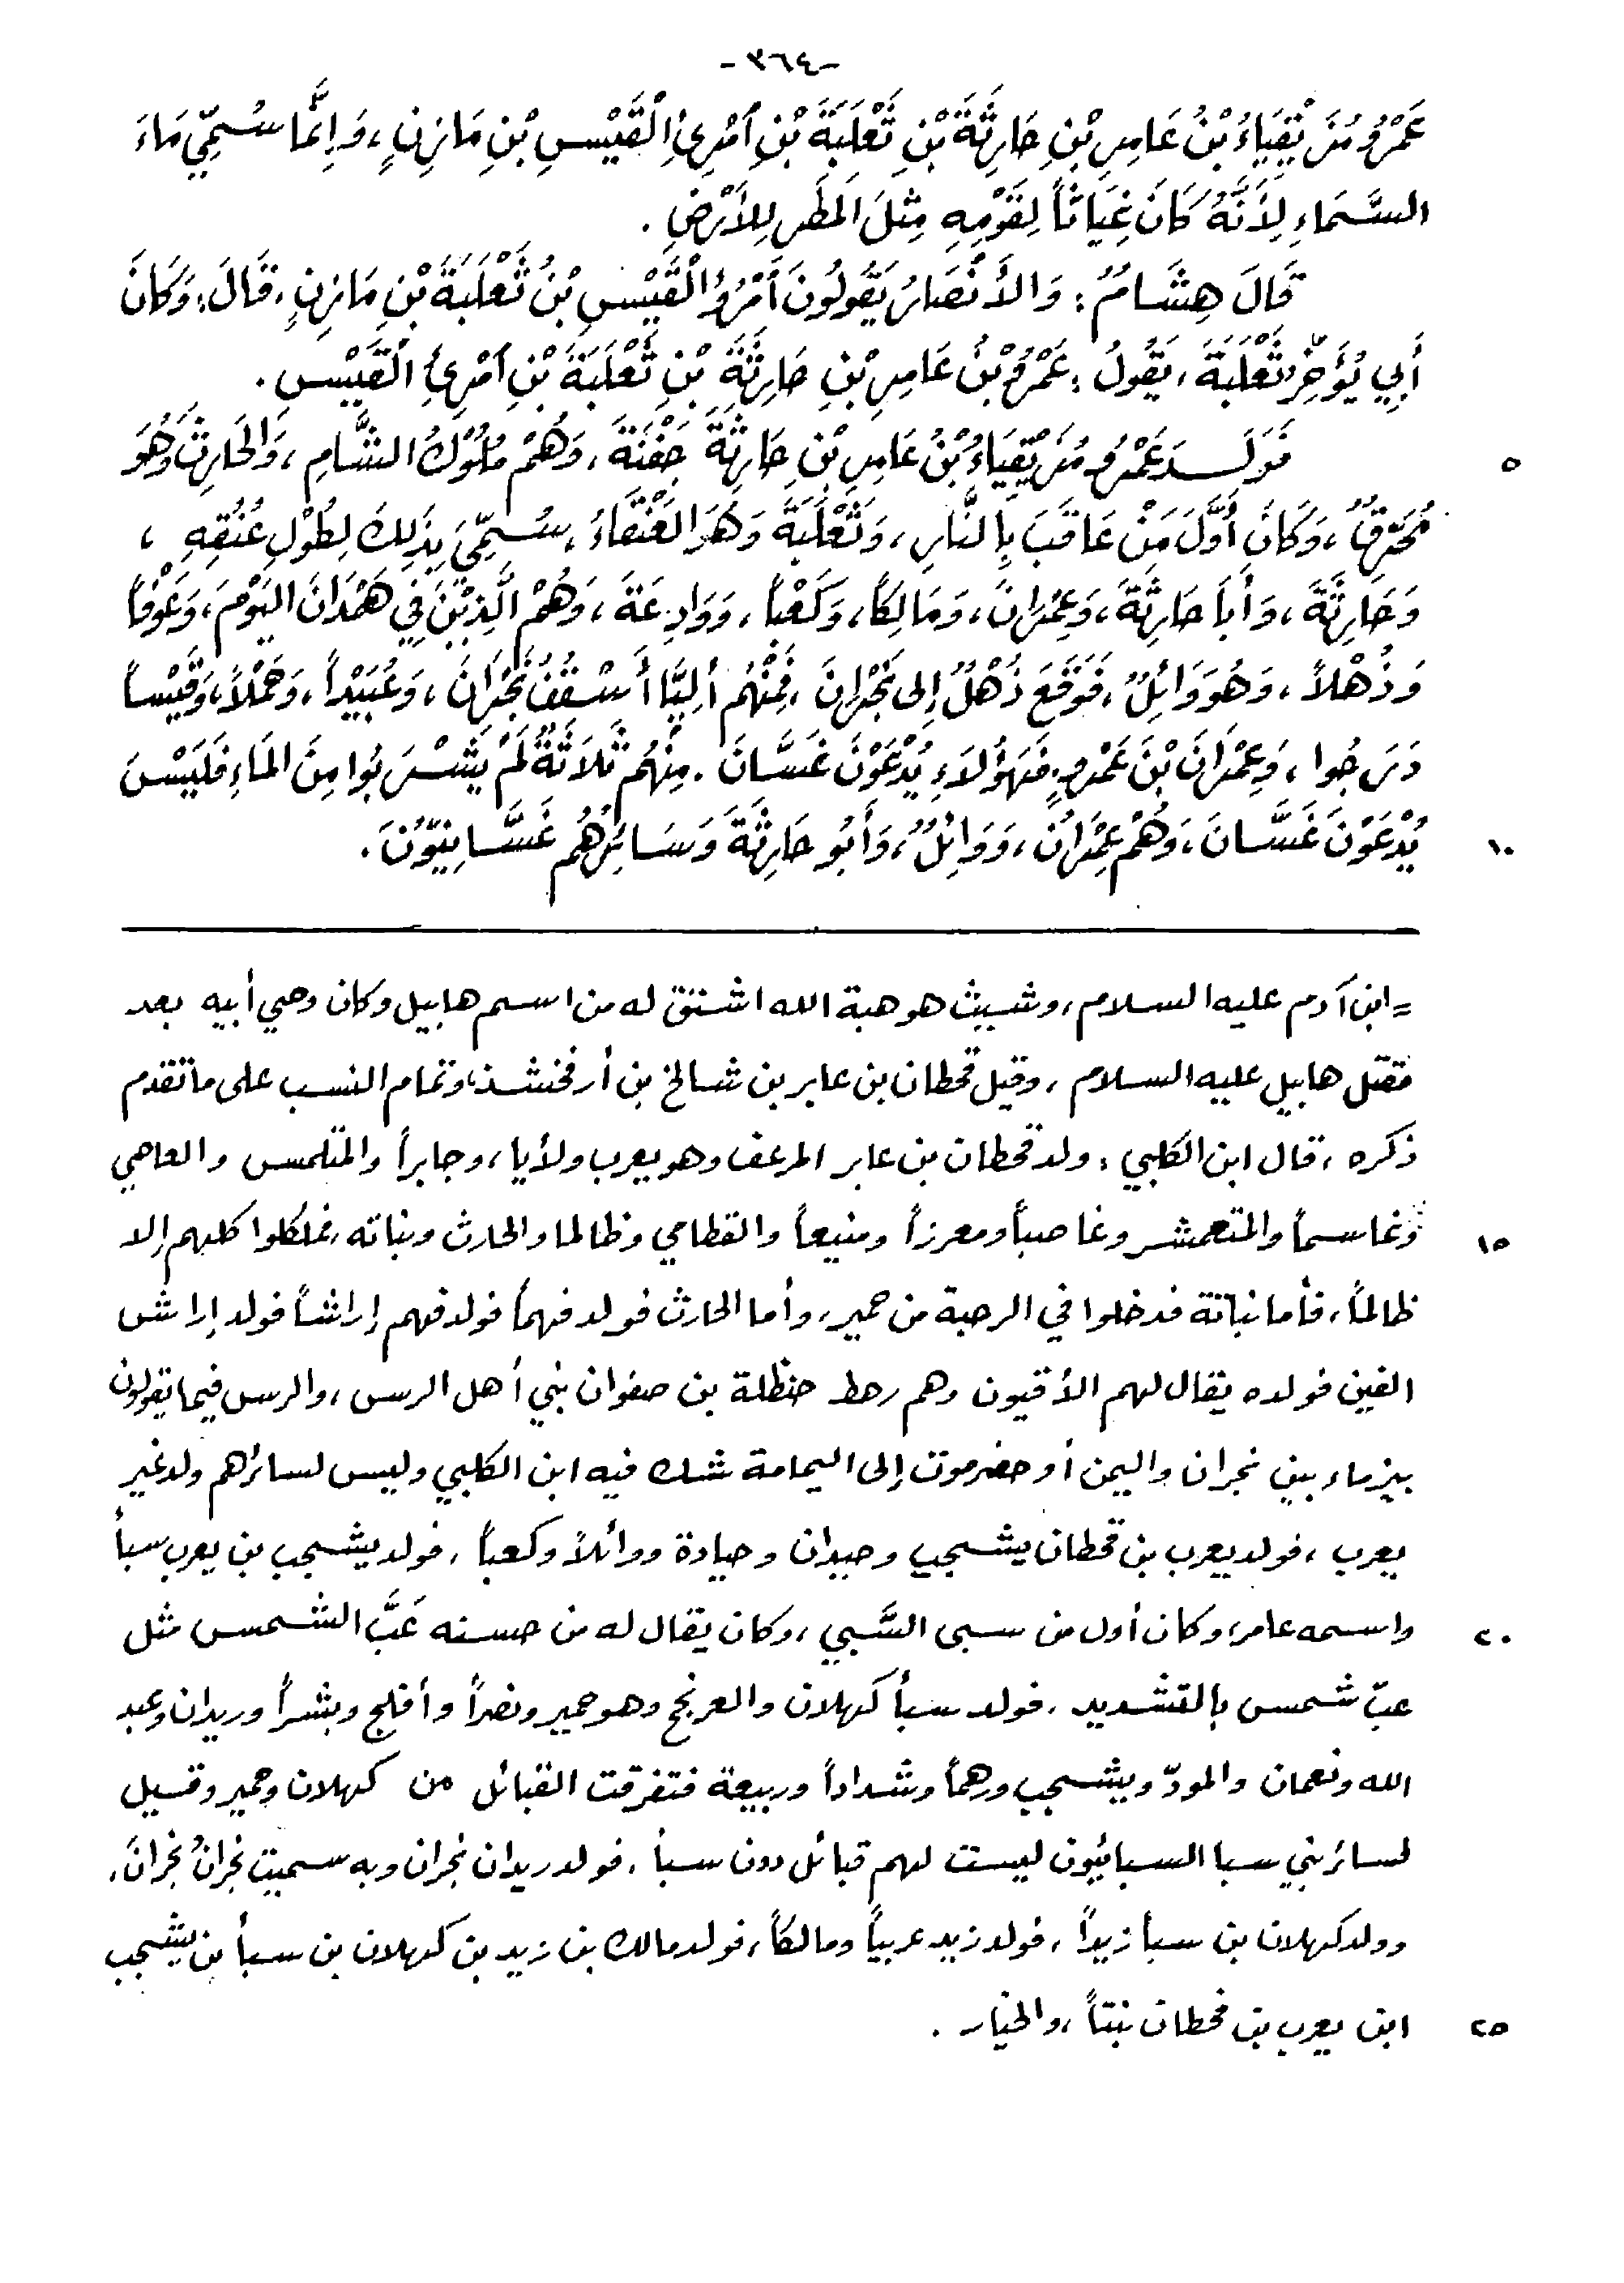 -٣٦٤-
عَمْرُو مُزَيْقِيَاءُ بْنُ عَامِرِ بْنِ حَارِثَةَ بْنِ ثَعْلَبَةَ بْنِ ٱمْرِئِ ٱلْقَيْسِ بْنِ مَازِنٍ، وَإِنَّمَا سُمِّيَ مَاءَ
السَّمَاءِ لِأَنَّهُ كَانَ غِيَاثاً لِقَوْمِهِ مِثْلَ المَطَرِ لِلأَرْضِ .
قَالَ هِشَامٌ : وَالأَنْصَارُ يَقُولُونَ ٱمْرُؤُ ٱلْقَيْسِ بْنُ ثَعْلَبَةَ بْنِ مَازِنٍ، قَالَ: وَكَانَ
أَبِي يُؤَخِّرُ ثَعْلَبَةَ ، يَقُولُ : عَمْرُو بْنُ عَامِرِ بْنِ حَارِثَةَ بْنِ ثَعْلَبَةَ بْنِ ٱمْرِئِ ٱلْقَيْسِ .
فَوَلَدَ عَمْرُو مُزَيْقِيَاءُ بْنُ عَامِرِ بْنِ حَارِثَةَ جَفْنَةَ، وَهُمْ مُلُوْكُ الشَّامِ ، وَالحَارِثَ وَهُوَ ٥
مُحَرِّقٌ ، وَكَانَ أَوَّلَ مَنْ عَاقَبَ بِالنَّارِ، وَثَعْلَبَةَ وَهُوَ العَنْقَاءُ ، سُمِّيَ بِذَلِكَ لِطُوْلِ عُنُقِهِ ،
وَحَارِثَةَ ، وَأَبَا حَارِثَةَ ، وَعِمْرَانَ ، وَمَالِكاً، وَكَعْباً ، وَوَادِعَةَ ، وَهُمْ الَّذِيْنَ فِي هَمْدَانَ اليَوْمَ، وَعَوْفاً
وَذُهْلاً ، وَهُوَ وَائِلٌ ، فَوَقَعَ ذُهْلٌ إِلى نَجْرَانَ ، فَمِنْهُم أَلِيَّا أَسْقُفُ نَجْرَانَ ، وَعُبَيْداً ، وَحَمْلاً، وَقَيْساً
دَرَجُوا ، وَعِمْرَانَ بْنَ عَمْرٍو، فَهَؤُلاَءِ يُدْعَوْنَ غَسَّانَ . مِنْهُم ثَلاَثَةٌ لَمْ يَشْرَبُوا مِنَ المَاءِ فَلَيْسَ
يُدْعَوْنَ غَسَّانَ ، وَهُمْ عِمْرَانُ ، وَوَائِلٌ ، وَأَبُو حَارِثَةَ وَسَائِرُهُم غَسَّانِيّوْنَ . ١٠
= ابن آدم عليه السلام، وشيث هو هبة الله اشتق له من اسم هابيل وكان وصي أبيه بعد
مقتل هابيل عليه السلام ، وقيل قحطان بن عابر بن شالخ بن أرفخشذ، وتمام النسب على ما تقدم
ذكره ، قال ابن الكلبي : ولد قحطان بن عابر المرعف وهو يعرب ولأيا، وجابراً والمتلمس والعاصي
وغاسماً والمتعمشر وغاصباً ومعرزاً ومنيعاً والقطامي وظالما والحارث ونباته، فهلكوا كلهم إلا ١٥
ظالماً، فأما نباتة فدخلوا في الرحبة من حمير، وأما الحارث فولد فهماً فولد فهم إراشاً فولد إراش
القين فولده يقال لهم الأقيون وهم رهط حنظلة بن صفوان نبي أهل الرس ، والرس فيما يقولون
بيزماء بين نجران واليمن أو حضرموت إلى اليمامة شك فيه ابن الكلبي وليس لسائرهم ولد غير
يعرب ، فولد يعرب بن قحطان يشجب وحيدان وحيادة ووائلاً وكعباً ، فولد يشجب بن يعرب سبأ
واسمه عامر، وكان أول من سبى السَّبي ، وكان يقال له من حسنه عَبَّ الشمس مثل ٢٠
عبّ شمس بالتشديد ، فولد سبأ كهلان والعرنج وهو حمير ونصراً وأفلج وبشراً وريدان وعبد
الله ونعمان والمودّ ويشجب ورهماً وشداداً وربيعة فتفرقت القبائل من كهلان وحمير وقيل
لسائر بني سبأ السبائيون ليست لهم قبائل دون سبأ ، فولد ريدان نجران وبه سميت نجرانُ نجرانَ،
وولد كهلان بن سبأ زيداً ، فولد زيد عربياً ومالكاً، فولد مالك بن زيد بن كهلان بن سبأ بن يشجب
ابن يعرب بن قحطان نبتاً ، والخيار . ٢٥